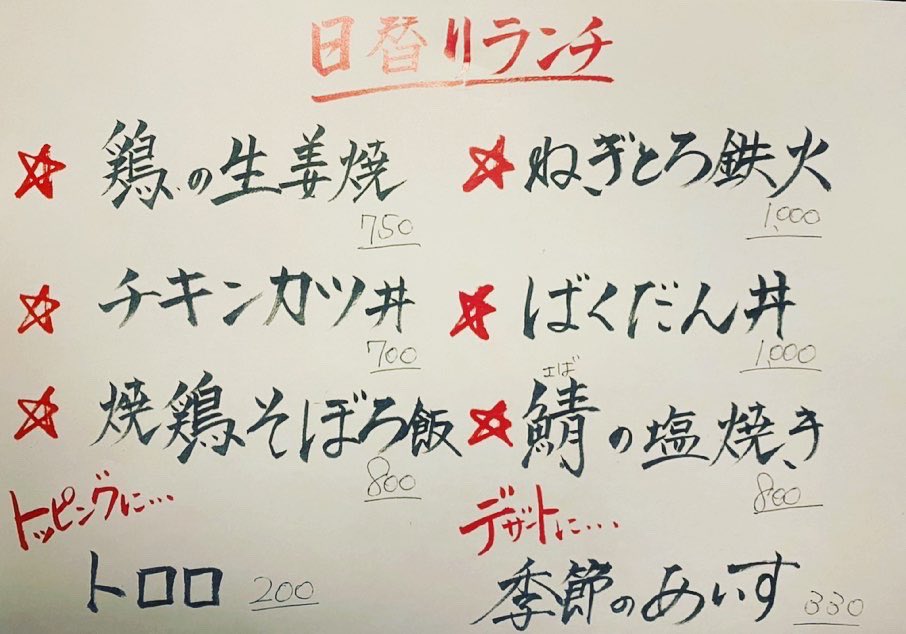 日替りランチ
鶏の生姜焼
750
ねぎとろ鉄火
1,000
チキンカツ丼
700
ばくだん丼
1,000
焼鶏そぼろ飯
800
さば
鯖の塩焼き
800
トッピングに…
トロロ 200
デザートに…
季節のあいす 330